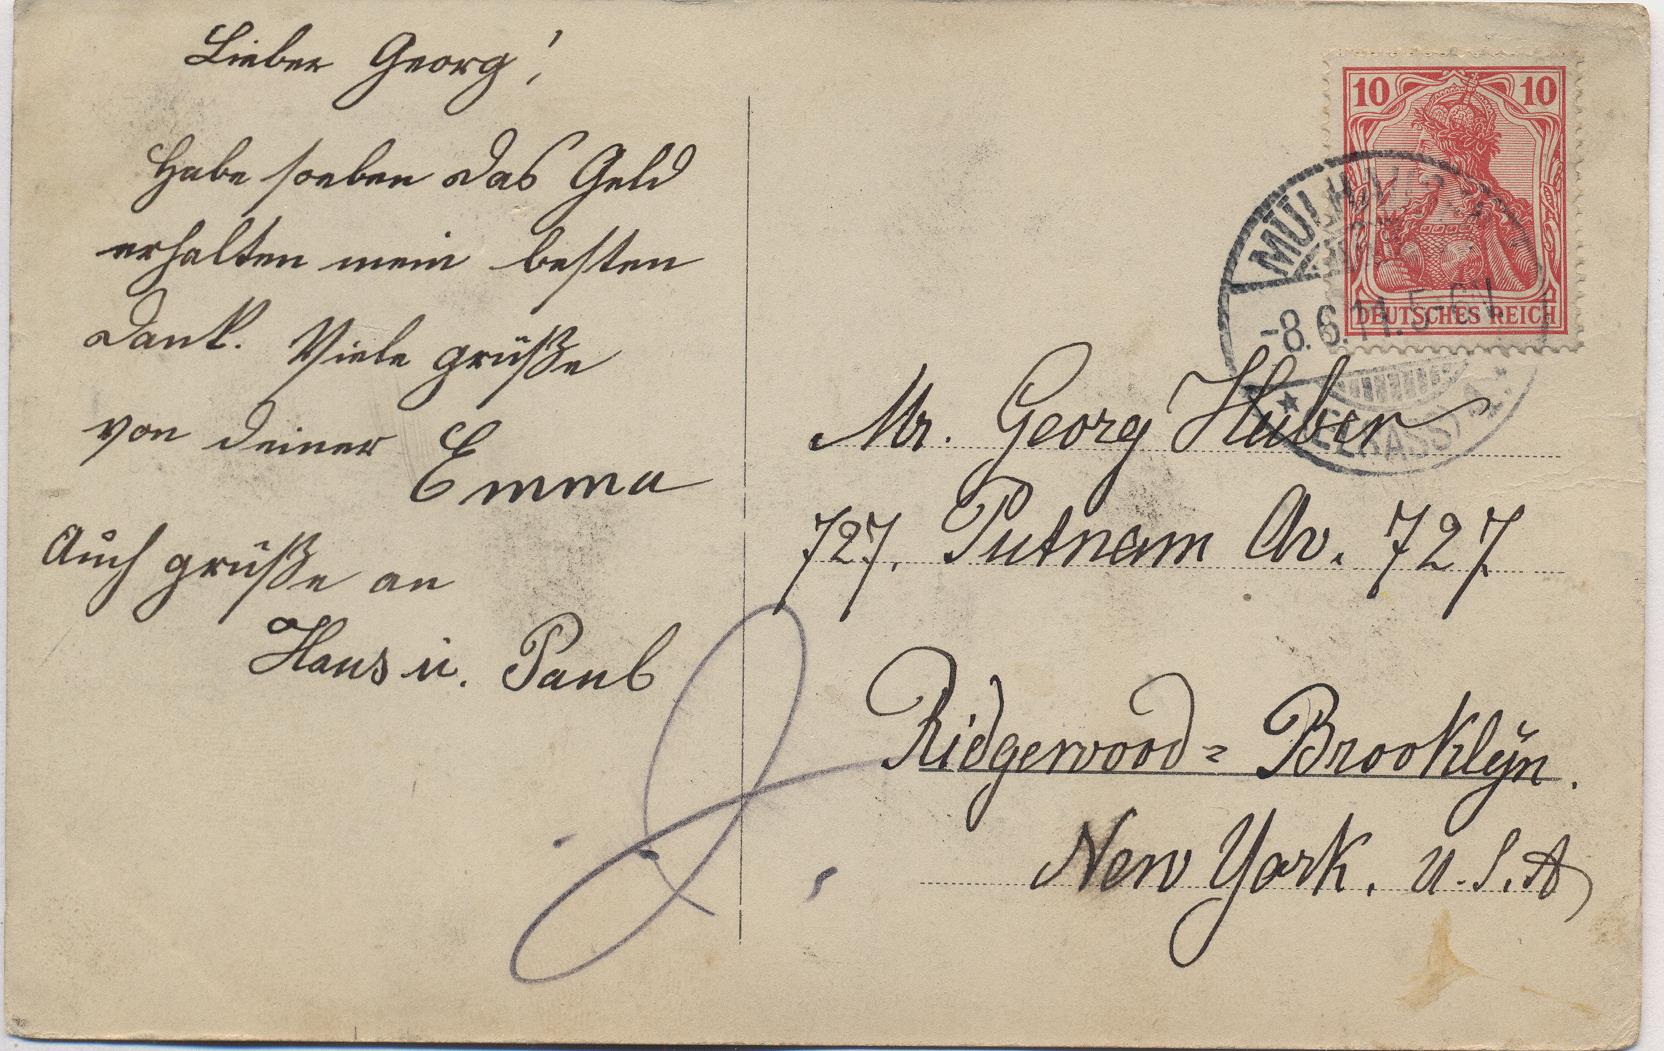 Lieber Georg!
Habe soeben das Geld
erhalten mein besten
Dank. Viele grüße
von deiner
Emma
Auch grüße an
Hans u. Paul
10 10
DEUTSCHES REICH
MÜLHAUSEN
-8.6.11.5-6N.
* (ELSASS) 1.
Mr. Georg Huber
727. Putnam Av. 727
Ridgewood = Brooklyn.
New York. U.S.A